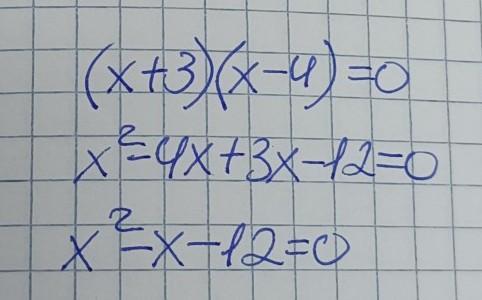 (x+3)(x-4)=0
x²-4x+3x-12=0
x²-x-12=0